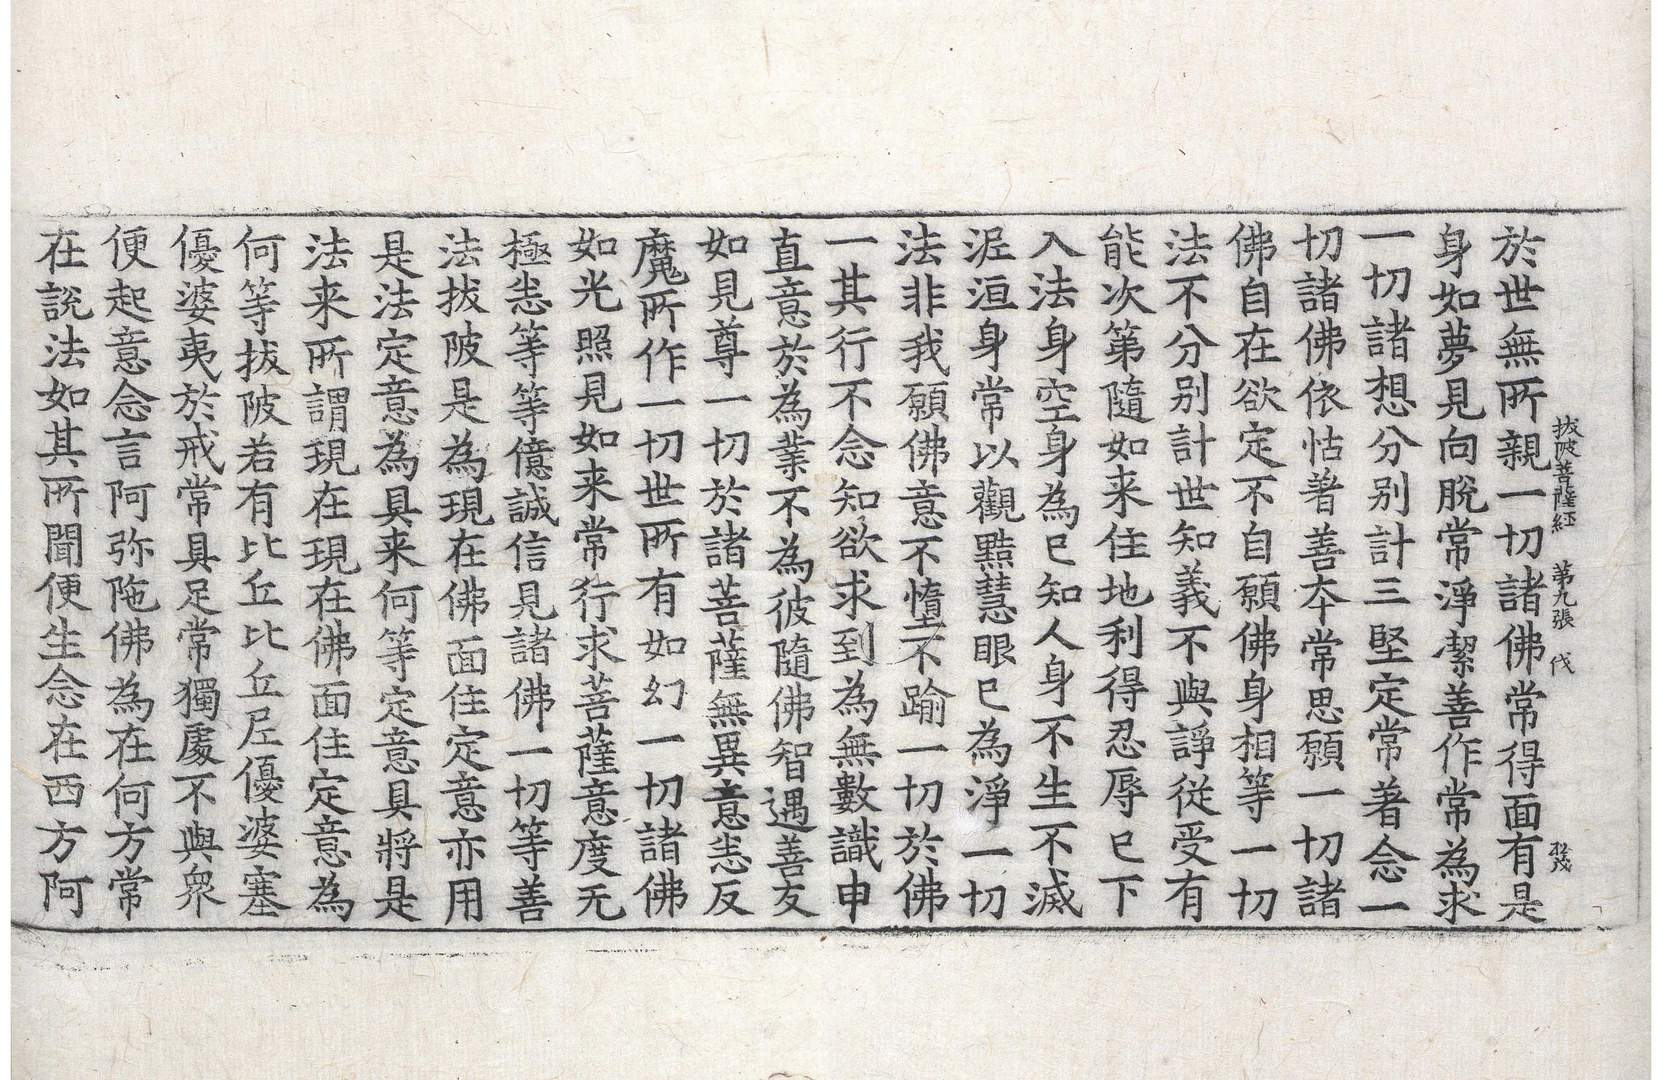 拔陂菩薩經　第九張　伐
於世無所親一切諸佛常得面有是
身如夢見向脫常淨潔善作常為求
一切諸想分别計三堅定常著念一
切諸佛依怙著善夲常思願一切諸
佛自在欲定不自願佛身相等一切
法不分别計世知義不與諍從受有
能次第隨如来住地利得忍辱已下
入法身空身為已知人身不生不滅
泥洹身常以觀黠慧眼已為淨一切
法非我願佛意不憻不踰一切於佛
一其行不念知欲求到為無數識申
直意於為業不為彼隨佛智遇善友
如見尊一切於諸菩薩無異意恚反
魔所作一切世所有如幻一切諸佛
如光照見如来常行求菩薩意度无
極恚等等億誠信見諸佛一切等善
法拔陂是為現在佛面住定意亦用
是法定意為具来何等定意具將是
法来所謂現在現在佛面住定意為
何等拔陂若有比丘比丘尼優婆塞
優婆夷於戒常具足常獨處不與衆
便起意念言阿弥陁佛為在何方常
在說法如其所聞便生念在西方阿